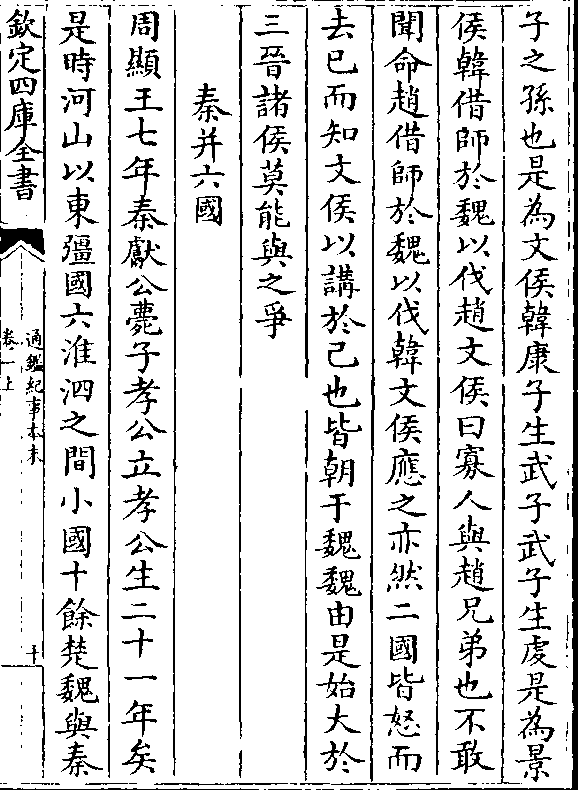 子之孫也是為文侯韓康子生武子武子生虔是為景
侯韓借師於魏以伐趙文侯曰寡人與趙兄弟也不敢
聞命趙借師於魏以伐韓文侯應之亦然二國皆怒而
去已而知文侯以講於己也皆朝于魏魏由是始大於
三晉諸侯莫能與之爭
秦并六國
周顯王七年秦獻公薨子孝公立孝公生二十一年矣
是時河山以東彊國六淮泗之間小國十餘楚魏與秦
欽定四庫全書
通鑑紀事本末
卷一上
十